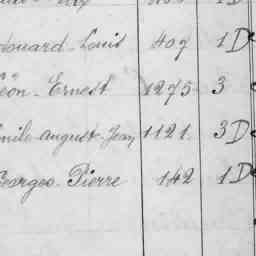 douard-Louis 409 1 D
éon-Ernest 1275 3
mile-august-Jean 1121 3 D
Georges-Pierre 142 1 D